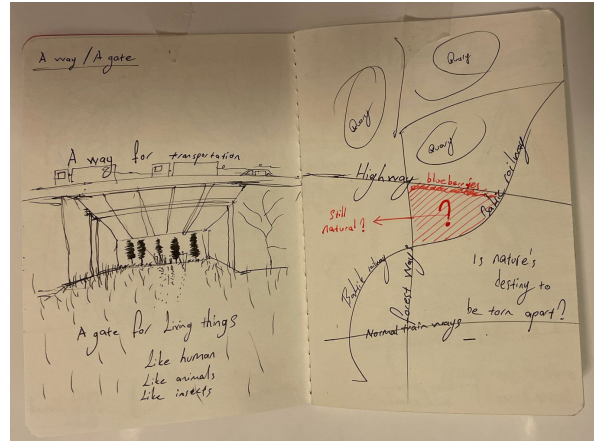 A way / A gate
A way for transportation
A gate for Living things
Like human
Like animals
Like insects
Quary
Quary
Quary
Highway
blueberries
Baltic railway
Still
natural?
?
Baltic railway
Forest ways
Normal train ways
Is nature's
destiny to
be torn apart?